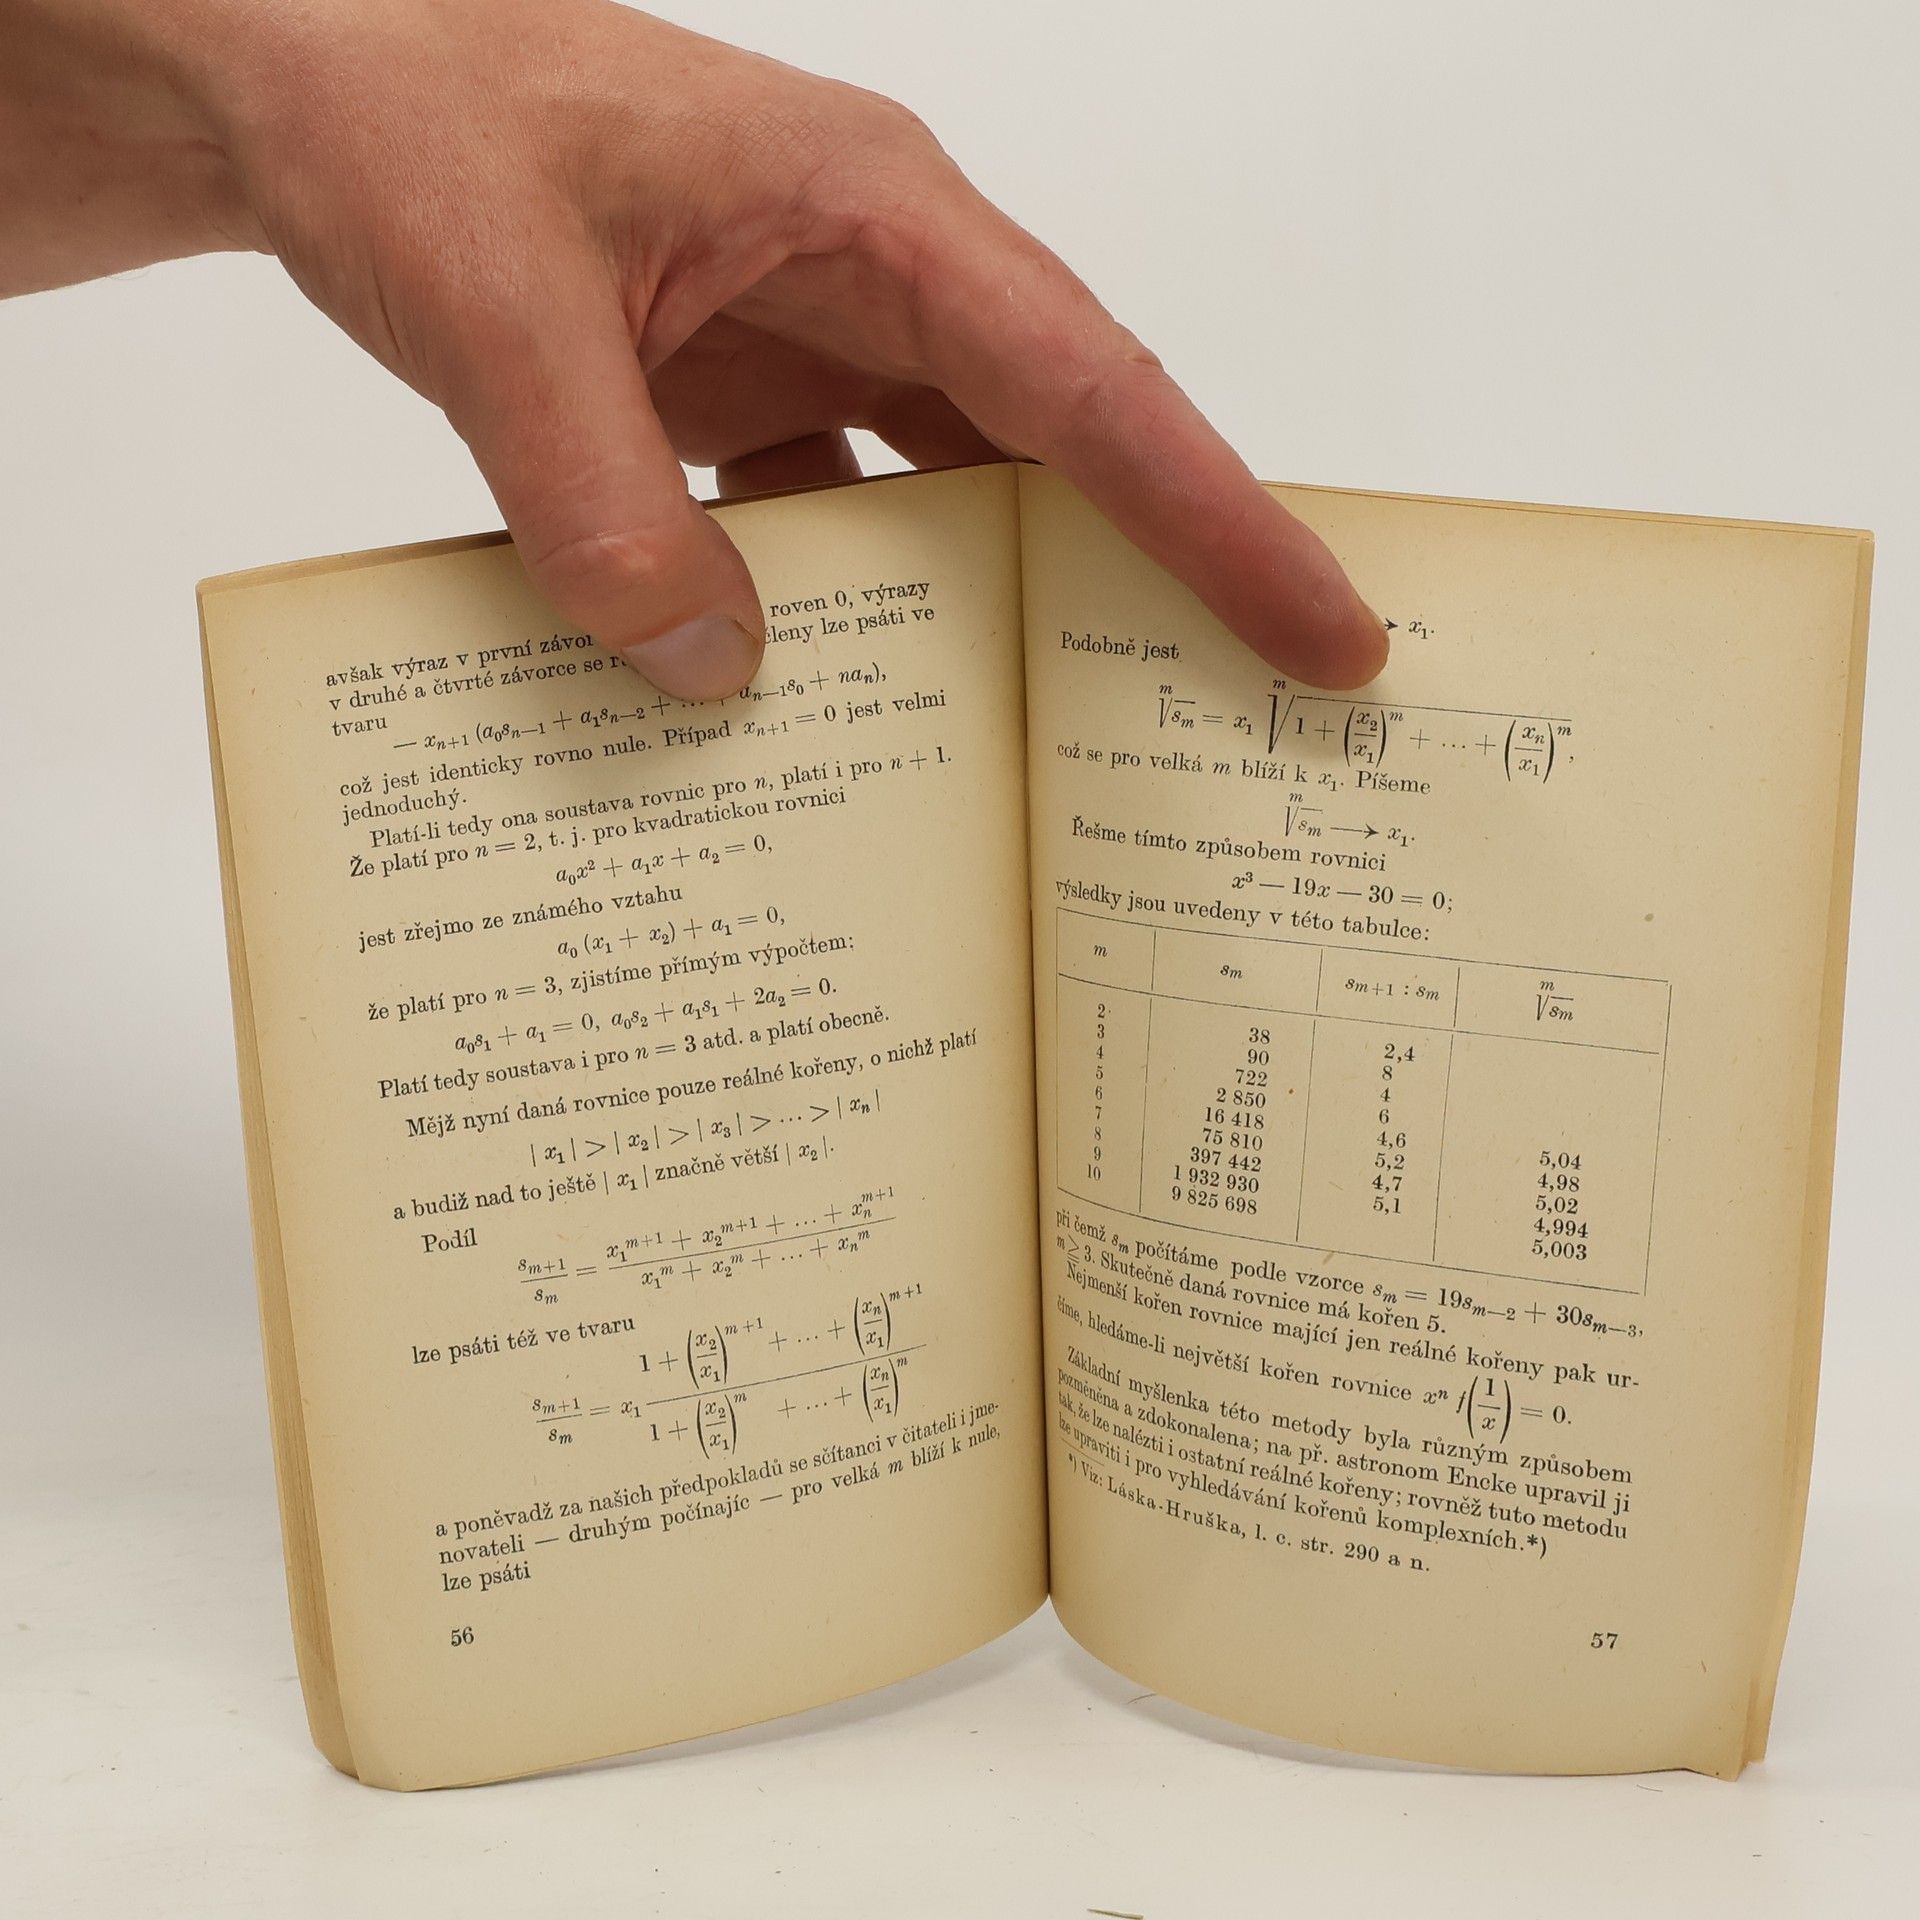 avšak výraz v první roven 0, výrazy
v druhé a čtvrté závorce se členy lze psáti ve
tvaru
— xₙ₊₁ (a₀sₙ₋₁ + a₁sₙ₋₂ + … + aₙ₋₁s₀ + naₙ),
což jest identicky rovno nule. Případ xₙ₊₁ = 0 jest velmi
jednoduchý.
Platí-li tedy ona soustava rovnic pro n, platí i pro n + 1.
Že platí pro n = 2, t. j. pro kvadratickou rovnici
a₀x² + a₁x + a₂ = 0,
jest zřejmo ze známého vztahu
a₀ (x₁ + x₂) + a₁ = 0,
že platí pro n = 3, zjistíme přímým výpočtem;
a₀s₁ + a₁ = 0, a₀s₂ + a₁s₁ + 2a₂ = 0.
Platí tedy soustava i pro n = 3 atd. a platí obecně.
Mějž nyní daná rovnice pouze reálné kořeny, o nichž platí
| x₁ | > | x₂ | > | x₃ | > … > | xₙ |
a budiž nad to ještě | x₁ | značně větší | x₂ |.
Podíl
sₘ₊₁/sₘ = (x₁^(m+1) + x₂^(m+1) + … + xₙ^(m+1))/(x₁^m + x₂^m + … + xₙ^m)
lze psáti též ve tvaru
sₘ₊₁/sₘ = x₁ (1 + (x₂/x₁)^(m+1) + … + (xₙ/x₁)^(m+1))/(1 + (x₂/x₁)^m + … + (xₙ/x₁)^m)
a poněvadž za našich předpokladů se sčítanci v čitateli i jme-
novateli — druhým počínajíc — pro velká m blíží k nule,
lze psáti
56
→ x₁.
Podobně jest
ᵐ√sₘ = x₁ ᵐ√(1 + (x₂/x₁)^m + … + (xₙ/x₁)^m),
což se pro velká m blíží k x₁. Píšeme
ᵐ√sₘ → x₁.
Řešme tímto způsobem rovnici
x³ — 19x — 30 = 0;
výsledky jsou uvedeny v této tabulce:
m sₘ sₘ₊₁ : sₘ ᵐ√sₘ
2 38 2,4
3 90 8
4 722 4
5 2 850 6
6 16 418 4,6 5,04
7 75 810 5,2 4,98
8 397 442 4,7 5,02
9 1 932 930 5,1 4,994
10 9 825 698 5,003
při čemž sₘ počítáme podle vzorce sₘ = 19sₘ₋₂ + 30sₘ₋₃,
m ≧ 3. Skutečně daná rovnice má kořen 5.
Nejmenší kořen rovnice mající jen reálné kořeny pak ur-
číme, hledáme-li největší kořen rovnice xⁿ f(1/x) = 0.
Základní myšlenka této metody byla různým způsobem
pozměněna a zdokonalena; na př. astronom Encke upravil ji
tak, že lze nalézti i ostatní reálné kořeny; rovněž tuto metodu
lze upraviti i pro vyhledávání kořenů komplexních.*)
*) Viz: Láska-Hruška, l. c. str. 290 a n.
57